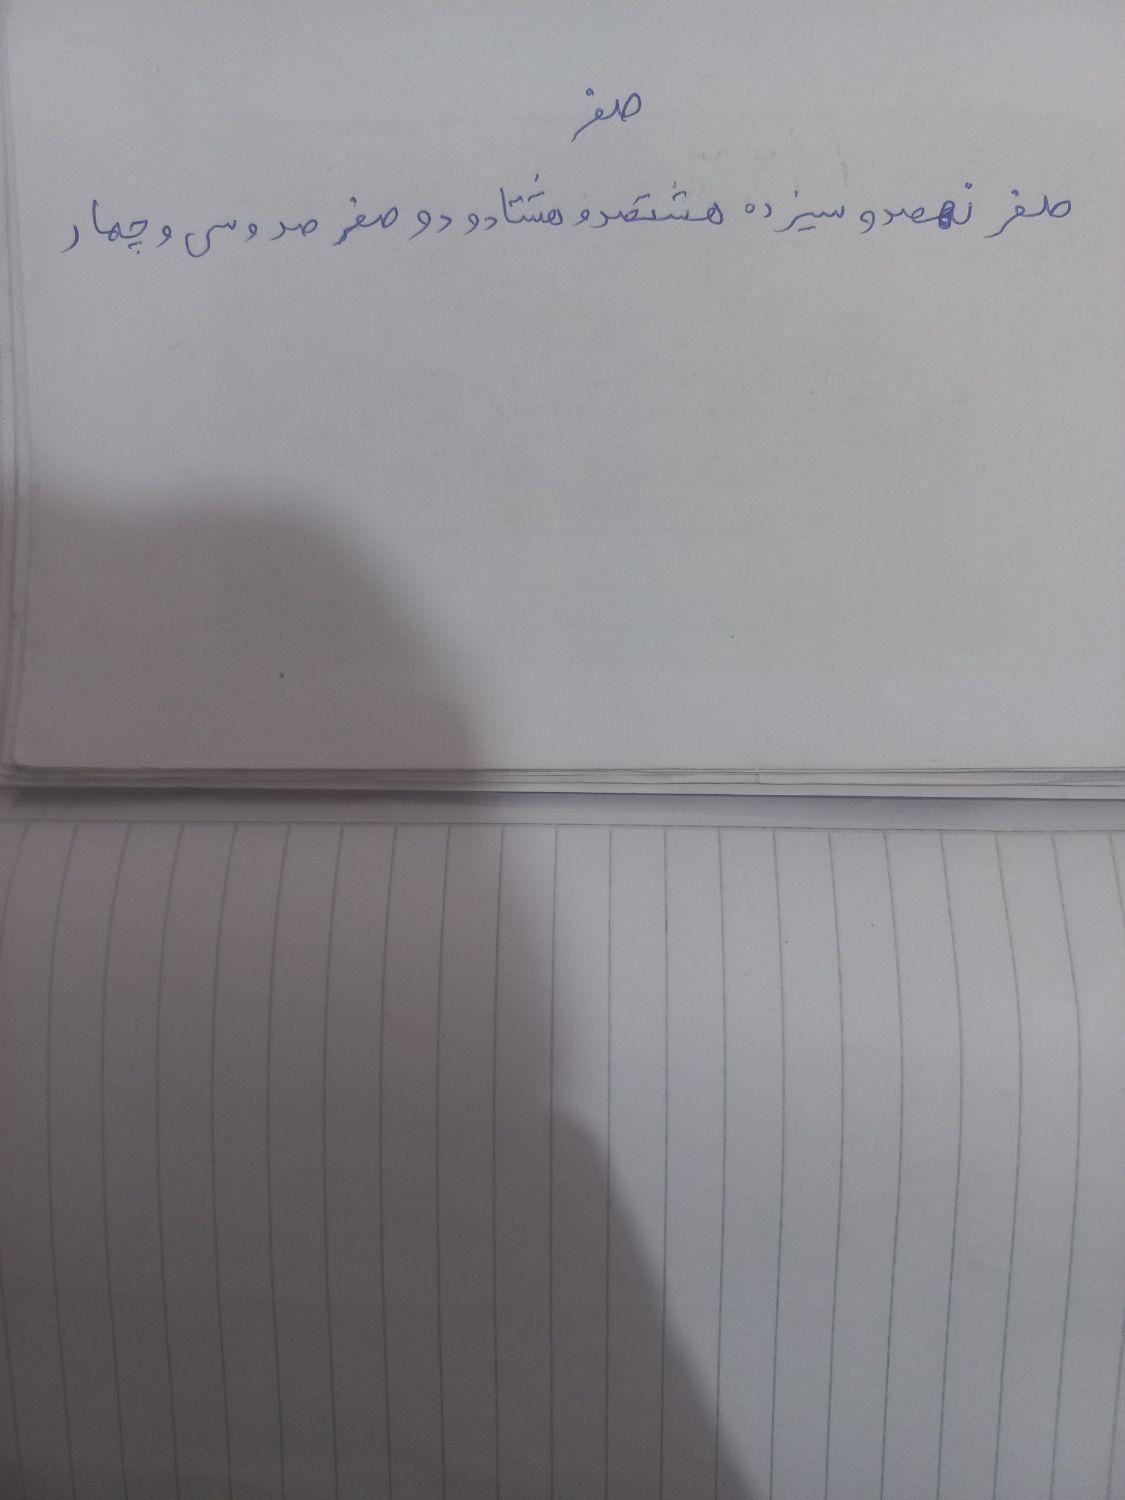 صفر
صفر نهصدو سیزده هشتصدو هشتادو دو صفر صد و سی و چهار